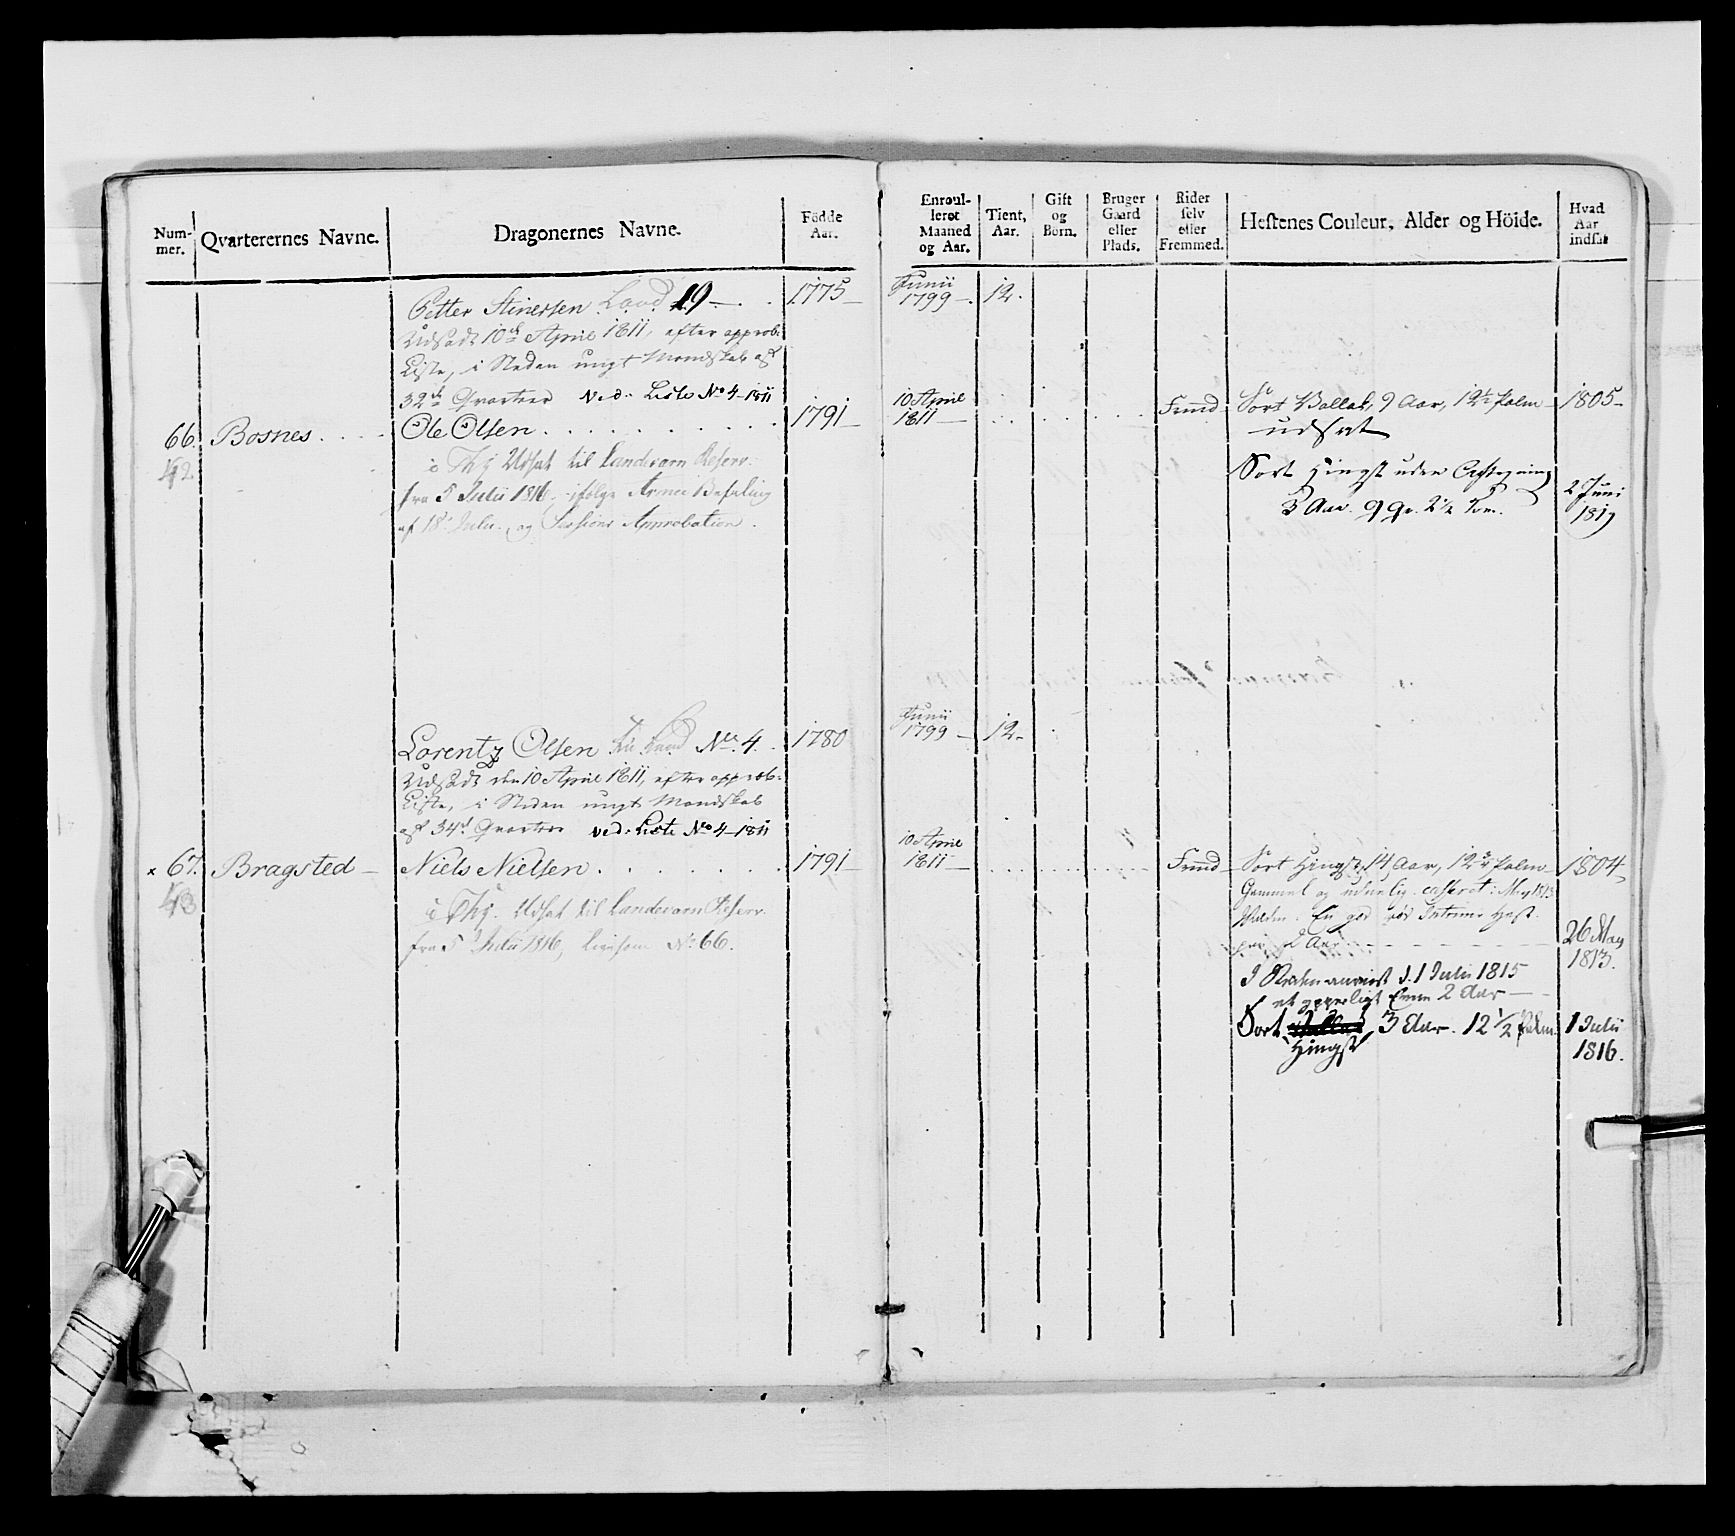 Num-
mer.
Qvarterernes Navne.
Dragonernes Navne.
Födde
Aar.
Enroul-
leret
Maaned
og Aar.
Tient,
Aar.
Gift
og
Børn.
Bruger
Gaard
eller
Plads.
Rider
selv
eller
Fremmed.
Hestenes Couleur, Alder og Höide.
Hvad
Aar
indsat
Petter Stinersen Land 19 1775 Junii 1799 12.
Udsadt 10de April 1811, efter approb:
Liste, i Steden ungt Mandskab af
32te Qvarteer Ved. Liste No 4 1811
66. Bosnes Ole Olsen 1791 10 April 1811 Fremd Sort Vallak, 9 Aar, 12½ Palm 1805
42 udsat
i Thj Udsat til Landeværn Reserv:
fra 5 Julii 1816 ifølge Armee Befaling
af 18 Julii og Sessions Approbation.
Sort Hingst uden Aftegning
3 Aar. 9 Qr. 2½ Tom. 2 Juni 1819
Lorentz Olsen Land No. 4. 1780 Junii 1799 12
Udsadt den 10 April 1811, efter approb:
Liste, i Steden ungt Mandskab
af 34de Qvarteer ved. Liste No 4 1811
x 67. Bragsted Niels Nielsen 1791 10 April 1811 Fremd Sort Hingst, 14 Aar, 12¾ Palm 1804
43
i Thj. Udsat til Landeværn Reserv.
fra 5 Julii 1816, ligesom No 66.
Gammel og uduelig casseret i May 1813
En god
2 Aar 26 May 1813.
d. 1 Julii 1815
et ypperligt 2 Aar
Sort Hingst, 3 Aar. 12 1/2 Palm. 1 Julii 1816.